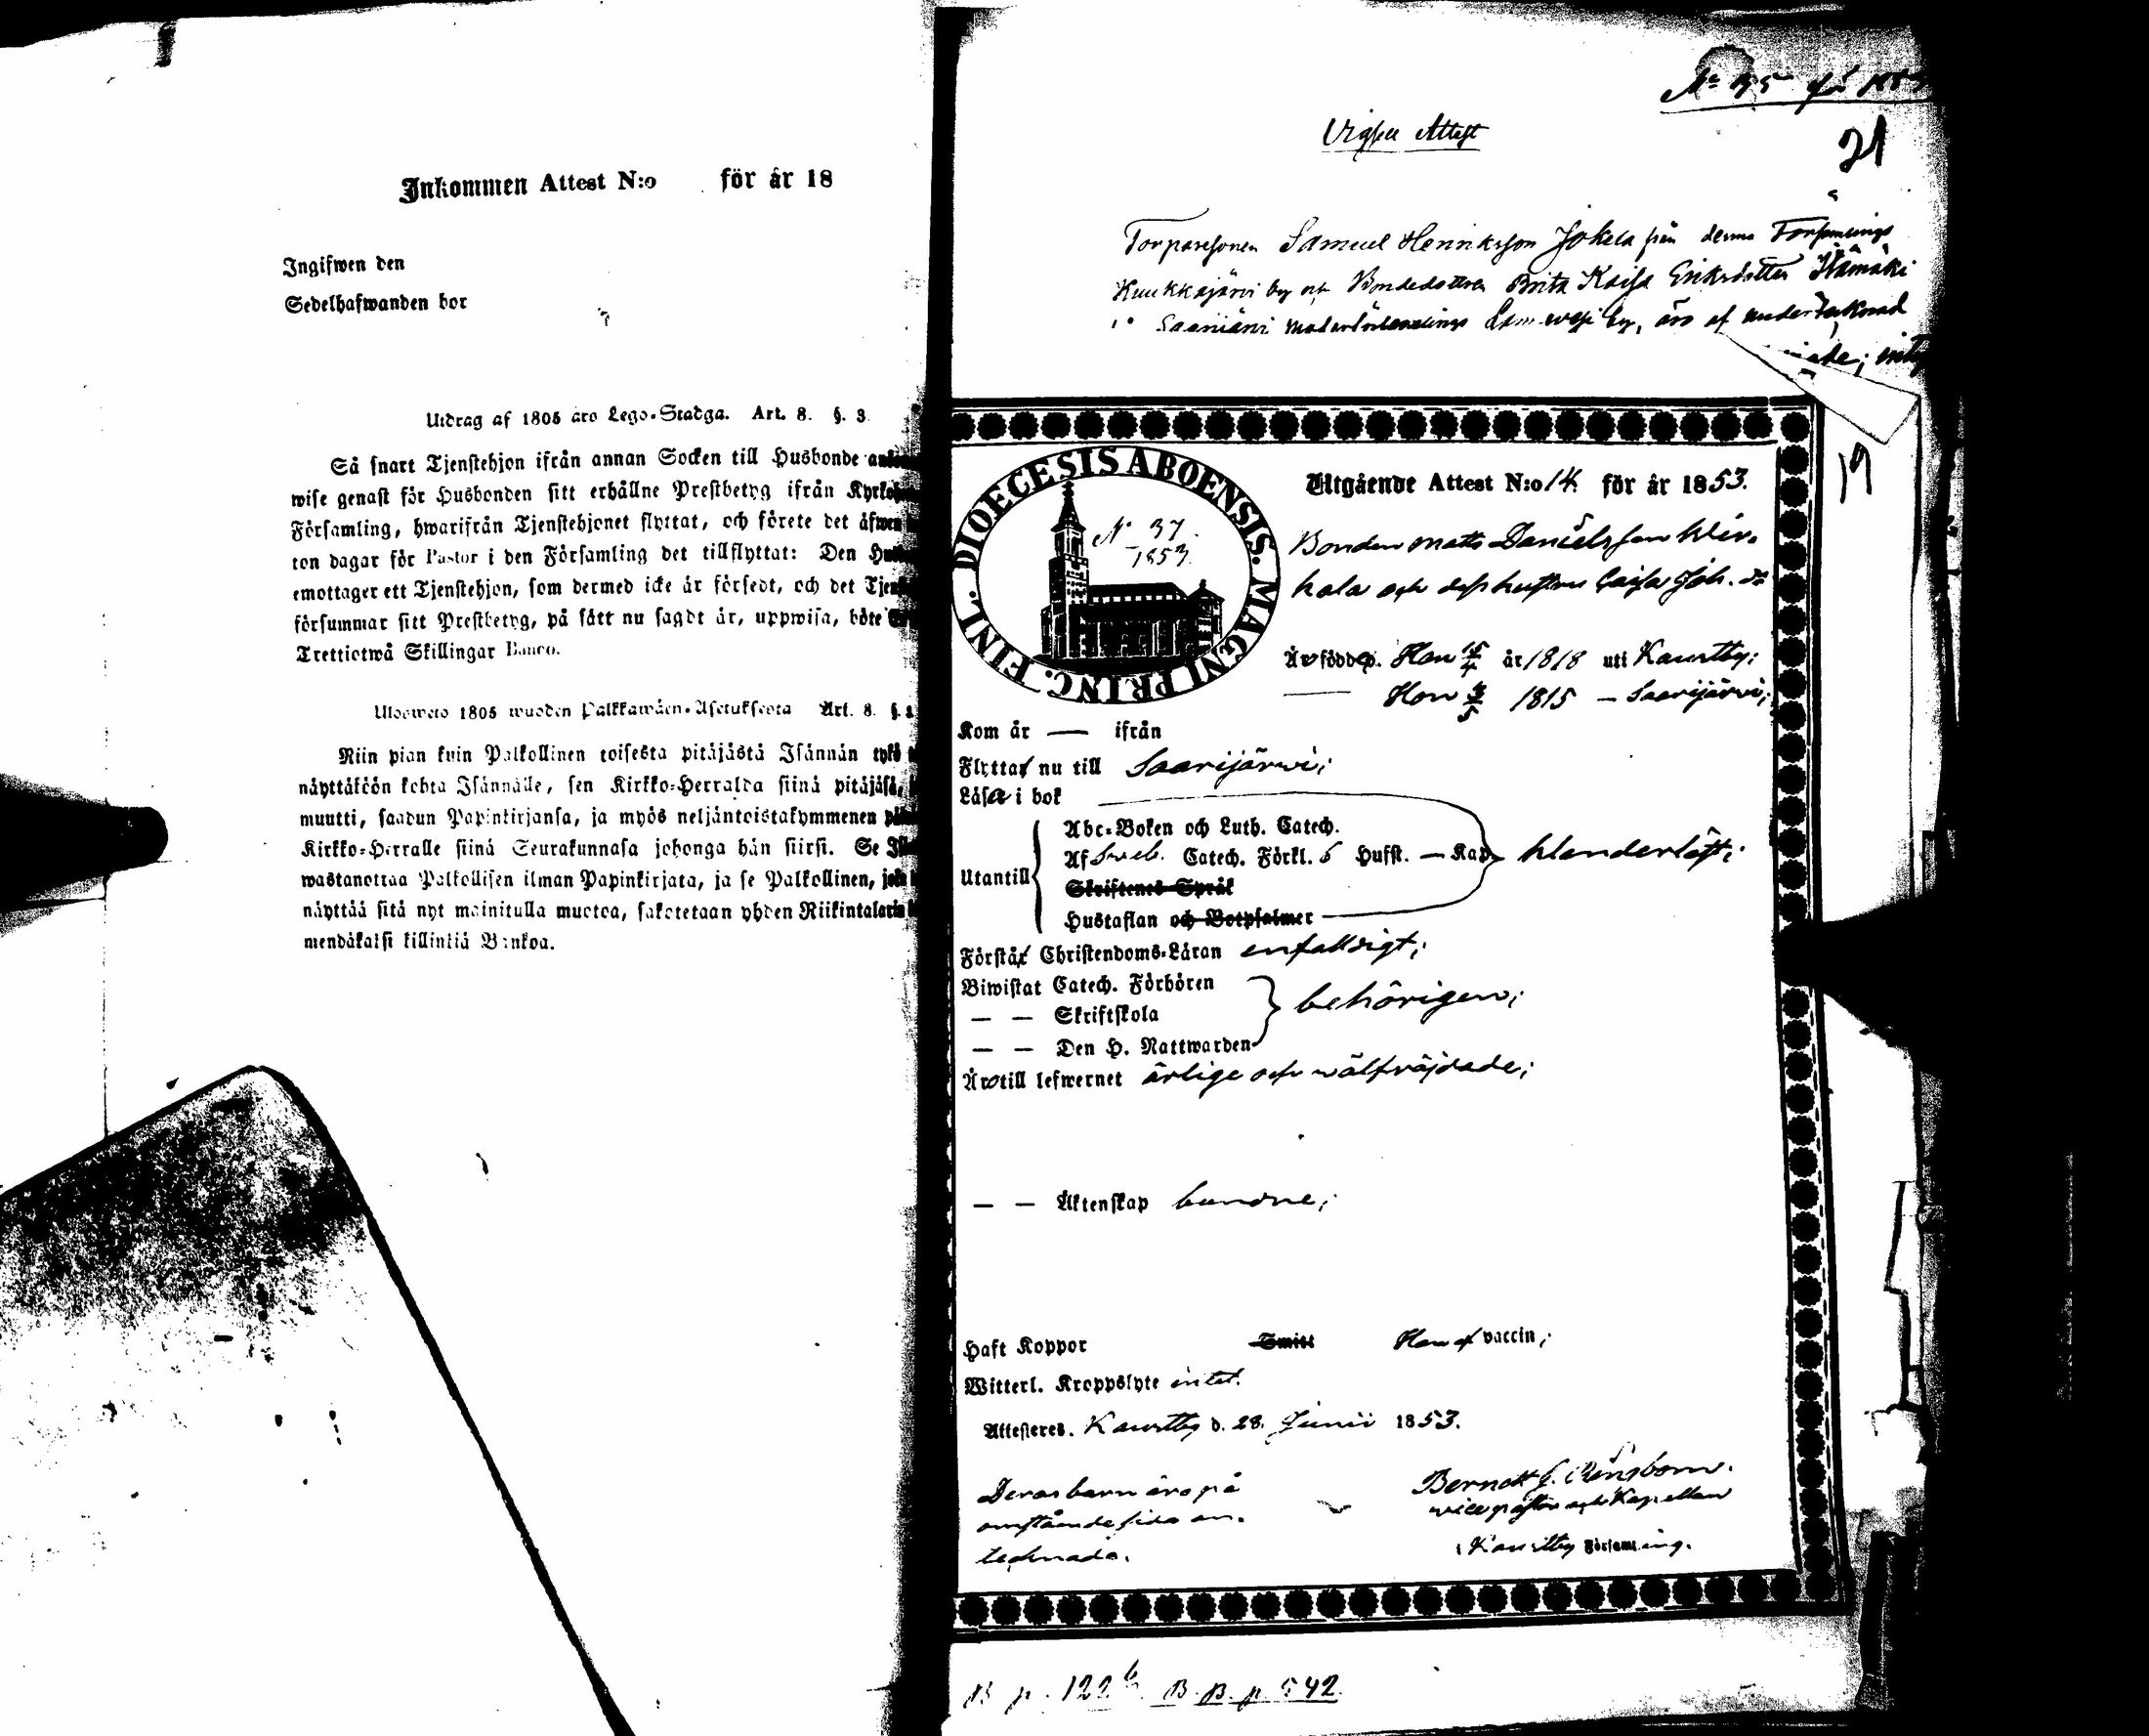 Inkommen Attest N:o för år 18
Ingifwen den
Sedelhafwanden bor
Utdrag af 1805 års Lego-Stadga. Art. 8. §. 3.
Så snart Tjenstehjon ifrån annan Socken till Husbonde
wise genast för Husbonden sitt erhållne Prestbetyg ifrån
Församling, hwarifrån Tjenstehjonet flyttat, och förete det
ton dagar för Pastor i den Församling det tillflyttat: Den
emottager ett Tjenstehjon, som dermed icke är försedt, och det
försummar sitt Prestbetyg, på sått nu sagdt är, uppwisa, böte
Trettiotwå Skillingar Banco.
Ulosweto 1805 wuoden Palkkawäen-Asetuksesta Art. 8. §.
Niin pian kuin Palkollinen toisesta pitäjästä Isännän tykö
näyttäköön kohta Isännälle, sen Kirkko-Herralda siinä pitäjäsä,
muutti, saadun Papinkirjansa, ja myös neljäntoistakymmenen
Kirkko-Herralle siinä Seurakunnasa johonga hän siirsi. Se
wastanottaa Palkollisen ilman Papinkirjata, ja se Palkollinen,
näyttää sitä nyt mainitulla muotoa, sakotetaan yhden Riikintalarin
mendäkaksi killinkiä Bankoa.
Vigsel Attest
21
Torparesonen Samuel Henriksson Jokela från denna Församlings
Kuukkajärvi by och Bondedottren Brita Kaisa Eriksdotter
Saarijärvi by, äro af undertecknad
19
DIOECESIS ABOENSIS. MAGNI PRINC. FINL.
N 37
1853
Utgående Attest N:o 14. för år 1853.
Bonden Matts Danielsson Kiv.
kala och dess hustru Caisa Joh. dr
Äro födde. Han 15/4 år 1818 uti Kaurtby;
Hon 1815 — Saarijärvi;
Kom år — ifrån
Flyttat nu till Saarijärwi;
Läsa i bok
Utantill
Abc-Boken och Luth. Catech.
Af Sveb. Catech. Förkl. 5 Hufst. — Kap
Skriftenes Språk
Hustaflan och Botpsalmer
klanderlöst;
Förstå Christendoms-Läran enfaldigt;
Biwistat Catech. Förhören
— — Skriftskola
— — Den H. Nattwarden
behörigen;
Äro till lefwernet ärlige och wälfräjdade;
— — Äktenskap bundne;
Haft Koppor Smitt Hon vaccin;
Witterl. Kroppslyte intet.
Attesteres. Kaurtby d. 28. Junii 1853.
Deras barn äro på
omstående sida an.
tecknade.
vice pastor och Kapellan
i Kaurtby Församling.
B p. 122 b. B. B. p 542